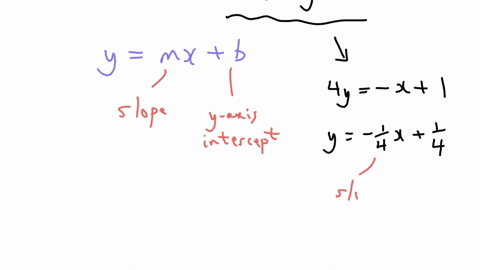 y = mx + b
slope
y-axis
intercept
4y = -x + 1
y = -1/4 x + 1/4